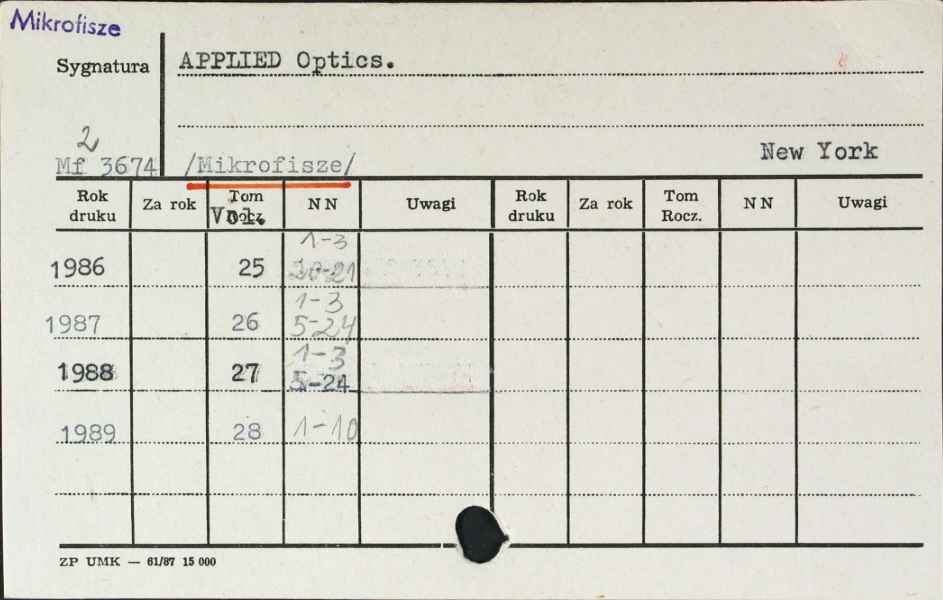 Mikrofisze
Sygnatura APPLIED Optics.
2
Mf 3674 /Mikrofisze/ New York
Rok druku Za rok Tom Rocz. Vol. NN Uwagi Rok druku Za rok Tom Rocz. NN Uwagi
1-3
1986 25 20-21
1-3
1987 26 5-24
1-3
1988 27 5-24
1989 28 1-10
ZP UMK — 61/87 15 000